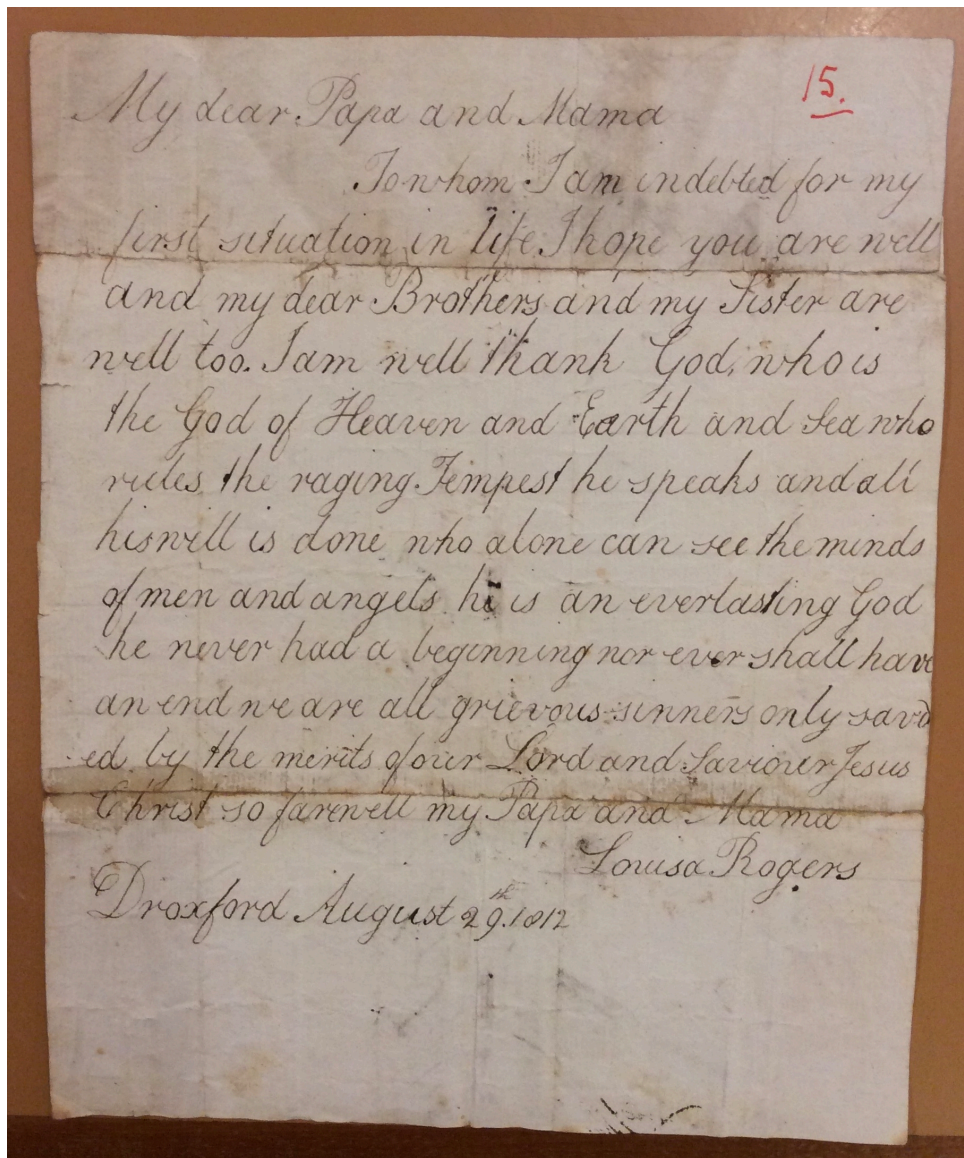 15.
My dear Papa and Mama
To whom I am indebted for my
first situation in life I hope you are well
and my dear Brothers and my Sister are
well too. I am well thank God, who is
the God of Heaven and Earth and Sea who
rules the raging Tempest he speaks and all
his will is done who alone can see the minds
of men and angels he is an everlasting God
he never had a beginning nor ever shall have
an end we are all grievous sinners only sav'd
ed by the merits of our Lord and Saviour Jesus
Christ so farewell my Papa and Mama
Louisa Rogers
Droxford August 29.th 1812